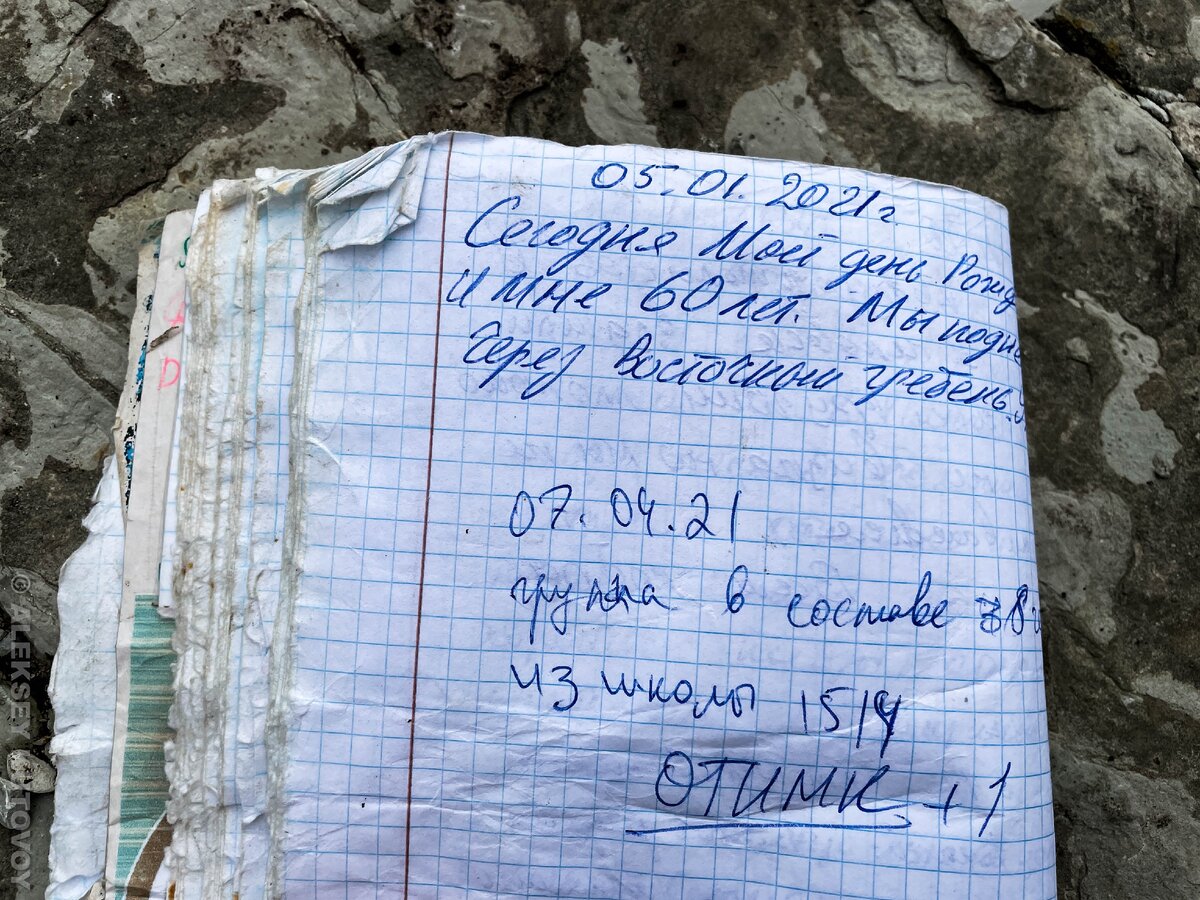 05.01.2021г
Сегодня Мой день Рожд
и мне 60 лет. Мы подне
Через Восточный гребень.
07.04.21
группа в составе 38
из школы 1514
ОТИМК +1
© ALEKSEY SITOVOY
D